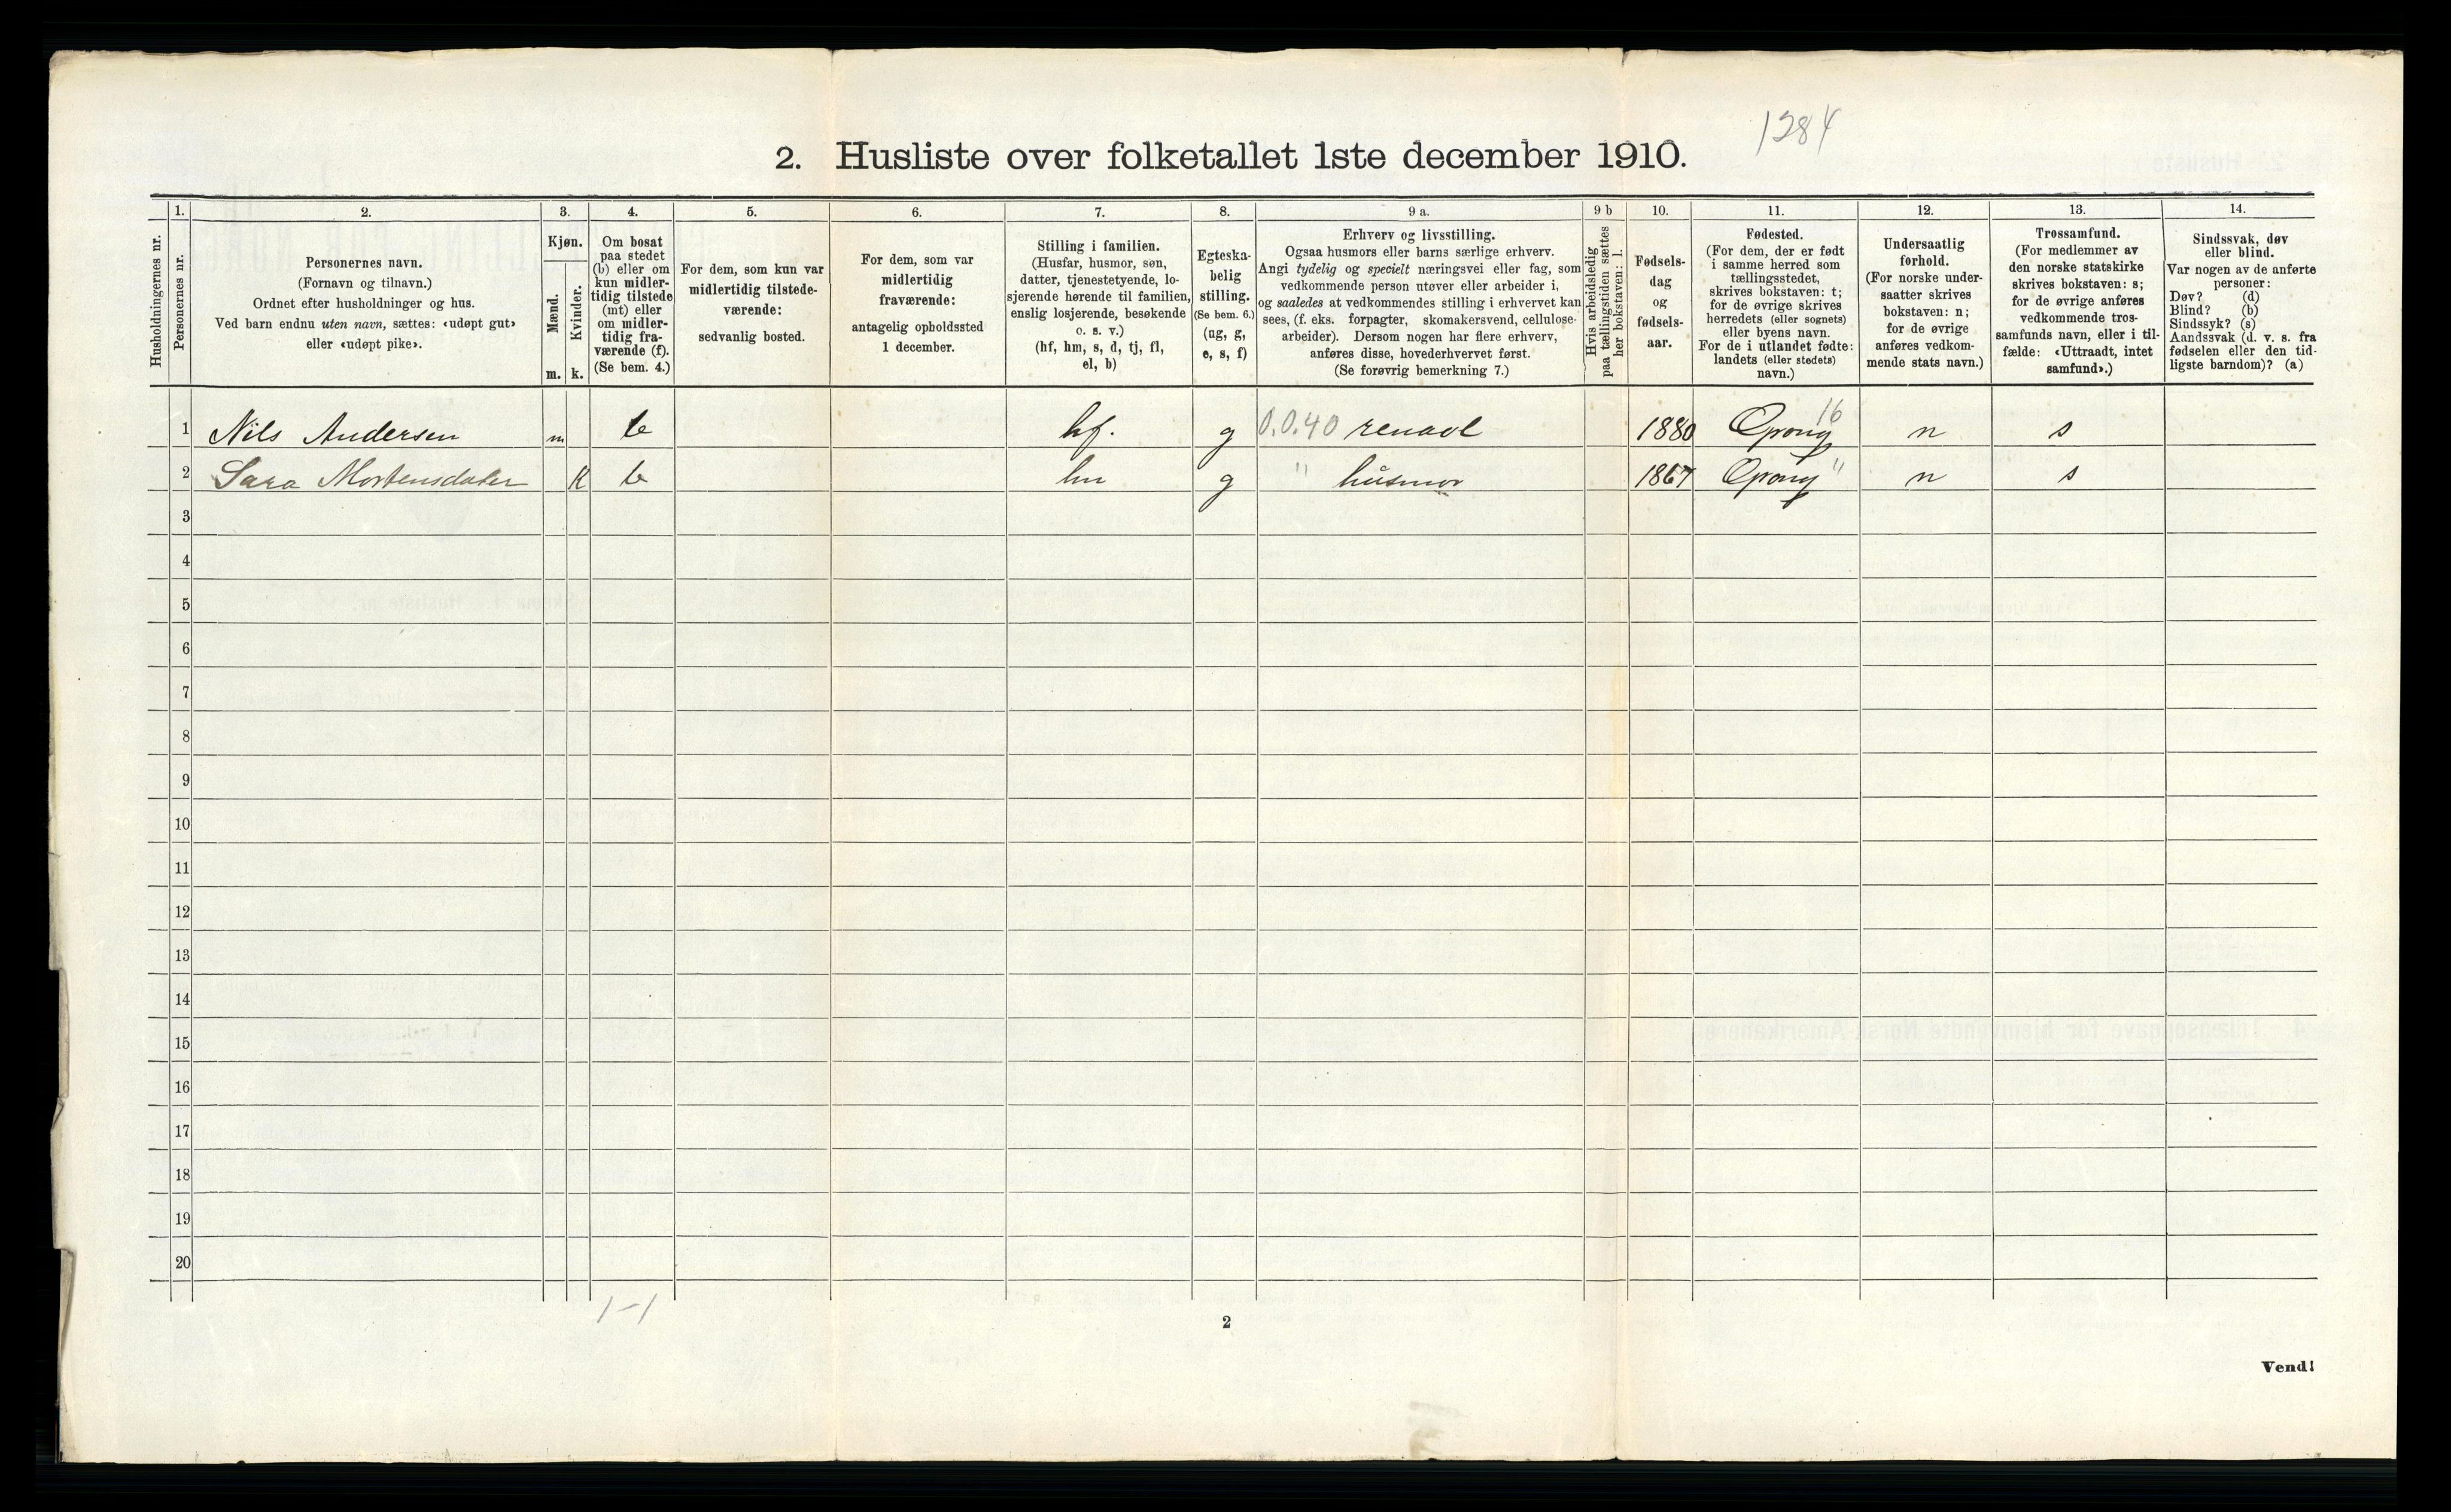 1284
2. Husliste over folketallet 1ste december 1910.
Husholdningernes nr.
1.
Personernes nr.
2.
Personernes navn.
(Fornavn og tilnavn.)
Ordnet efter husholdninger og hus.
Ved barn endnu uten navn, sættes: «udøpt gut»
eller «udøpt pike».
3.
Kjøn.
Mænd.
Kvinder.
m. k.
4.
Om bosat
paa stedet
(b) eller om
kun midler-
tidig tilstede
(mt) eller
om midler-
tidig fra-
værende (f).
(Se bem. 4.)
5.
For dem, som kun var
midlertidig tilstede-
værende:
sedvanlig bosted.
6.
For dem, som var
midlertidig
fraværende:
antagelig opholdssted
1 december.
7.
Stilling i familien.
(Husfar, husmor, søn,
datter, tjenestetyende, lo-
sjerende hørende til familien,
enslig losjerende, besøkende
o. s. v.)
(hf, hm, s, d, tj, fl,
el, b)
8.
Egteska-
belig
stilling.
(Se bem. 6.)
(ug, g,
e, s, f)
9 a.
Erhverv og livsstilling.
Ogsaa husmors eller barns særlige erhverv.
Angi tydelig og specielt næringsvei eller fag, som
vedkommende person utøver eller arbeider i,
og saaledes at vedkommendes stilling i erhvervet kan
sees, (f. eks. forpagter, skomakersvend, cellulose-
arbeider). Dersom nogen har flere erhverv,
anføres disse, hovederhvervet først.
(Se forøvrig bemerkning 7.)
9 b
Hvis arbeidsledig
paa tællingstiden sættes
her bokstaven: l.
10.
Fødsels-
dag
og
fødsels-
aar.
11.
Fødested.
(For dem, der er født
i samme herred som
tællingsstedet,
skrives bokstaven: t;
for de øvrige skrives
herredets (eller sognets)
eller byens navn.
For de i utlandet fødte:
landets (eller stedets)
navn.)
12.
Undersaatlig
forhold.
(For norske under-
saatter skrives
bokstaven: n;
for de øvrige
anføres vedkom-
mende stats navn.)
13.
Trossamfund.
(For medlemmer av
den norske statskirke
skrives bokstaven: s;
for de øvrige anføres
vedkommende tros-
samfunds navn, eller i til-
fælde: «Uttraadt, intet
samfund».)
14.
Sindssvak, døv
eller blind.
Var nogen av de anførte
personer:
Døv? (d)
Blind? (b)
Sindssyk? (s)
Aandssvak (d. v. s. fra
fødselen eller den tid-
ligste barndom)? (a)
1 Nils Andersen m b hf. g 0.0.40 renavl 1880 16 n s
2 Sara Mortensdater K b hm g " husmor 1867 " n s
3
4
5
6
7
8
9
10
11
12
13
14
15
16
17
18
19
20
1-1
2
Vend!